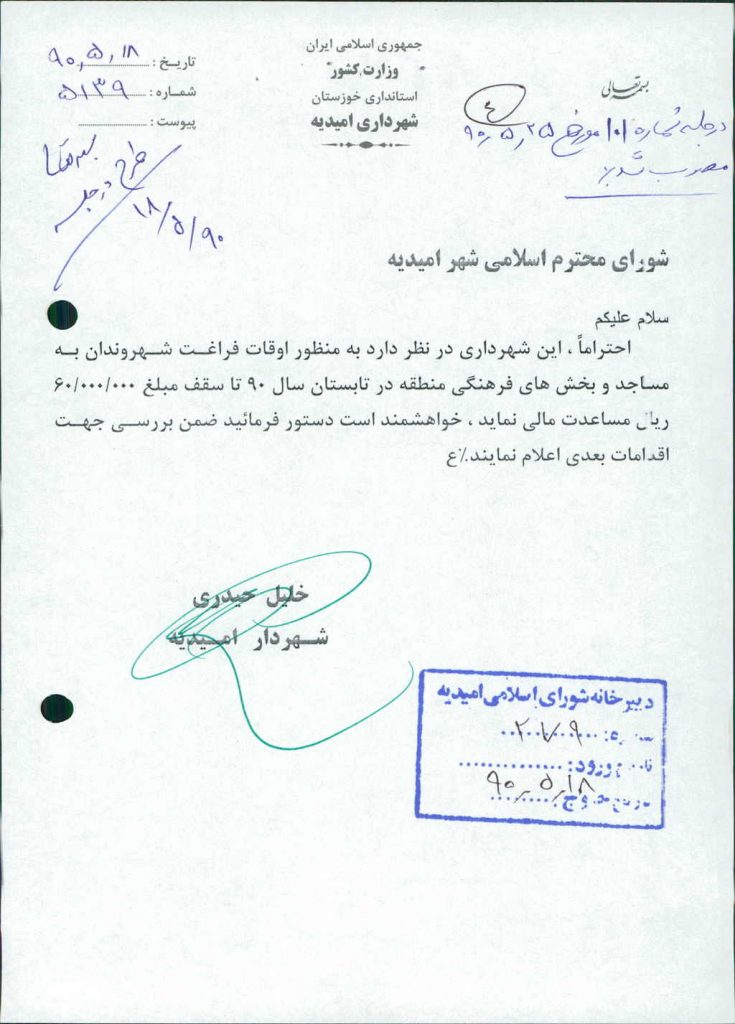 بسمه تعالی
جمهوری اسلامی ایران
وزارت کشور
استانداری خوزستان
شهرداری امیدیه
تاریخ : ۹۰٫۵٫۱۸
شماره : ۵۱۳۹
پیوست :
۴
در جلسه شماره ۱۰۱ مورخ ۹۰٫۵٫۲۵
مصوب شد٪
بسمه تعالی
طرح در جلسه
۹۰/۵/۱۸
شورای محترم اسلامی شهر امیدیه
سلام علیکم
احتراماً ، این شهرداری در نظر دارد به منظور اوقات فراغت شهروندان به
مساجد و بخش های فرهنگی منطقه در تابستان سال ۹۰ تا سقف مبلغ ۶۰/۰۰۰/۰۰۰
ریال مساعدت مالی نماید ، خواهشمند است دستور فرمائید ضمن بررسی جهت
اقدامات بعدی اعلام نمایند.٪ع
خلیل حیدری
شهردار امیدیه
دبیرخانه شورای اسلامی امیدیه
ورود:
۹۰٫۵٫۱۸